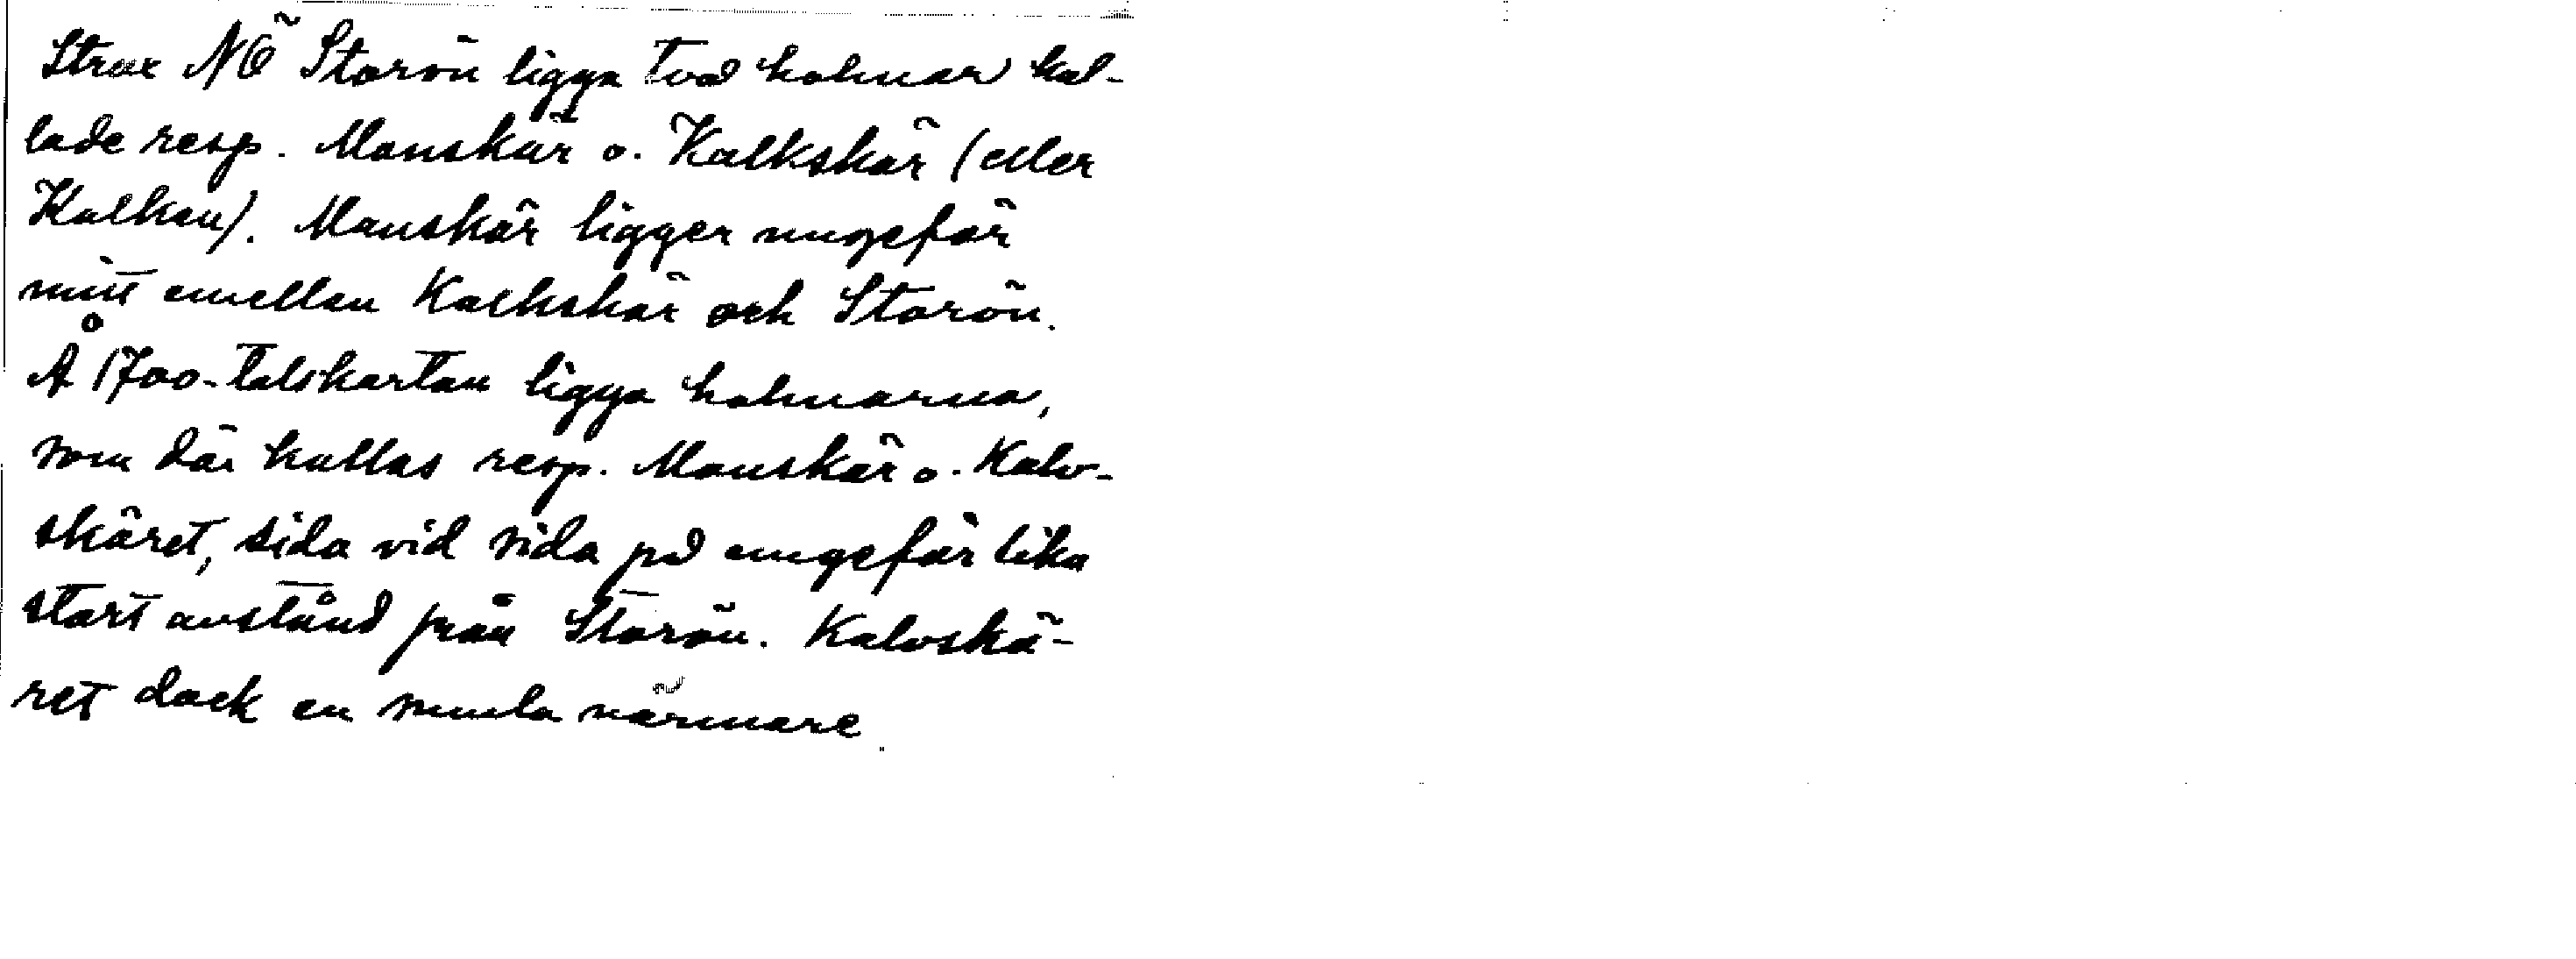 Strax NÖ Storön ligga två holmar kal-
lade resp. Manskär o. Kalkskär (eller
Kalken). Manskär ligger ungefär
mitt emellan Kalkskär och Storön.
Å 1700-talskartan ligga holmarna,
som där kallas resp. Manskär o. Kalv-
skäret, sida vid sida på ungefär lika
stort avstånd från Storön. Kalvskä-
ret dock en smula närmare.